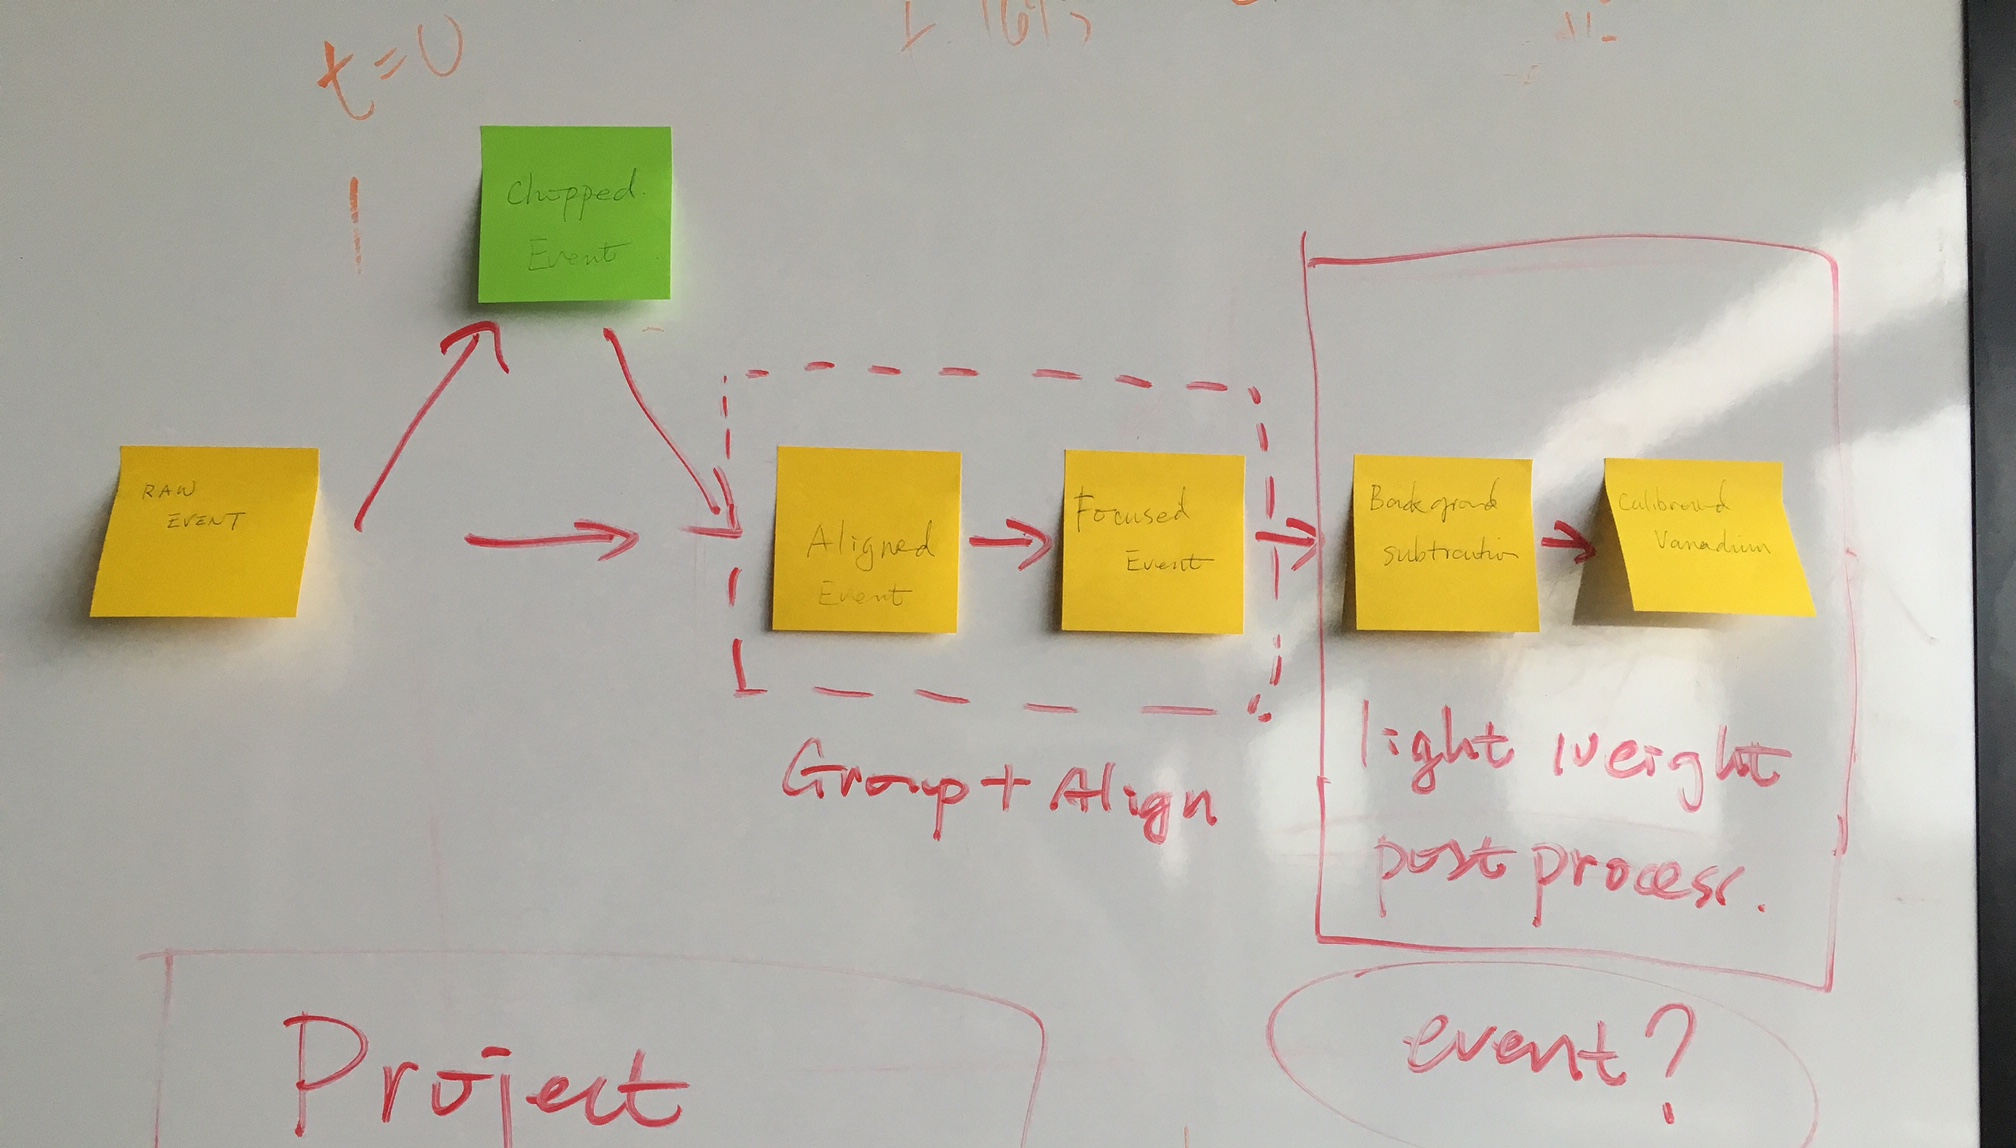 t=0
Chopped
Event
RAW
EVENT
Aligned
Event
Focused
Event
Background
subtraction
Vanadium
Group + Align
light weight
post process.
Project
event?